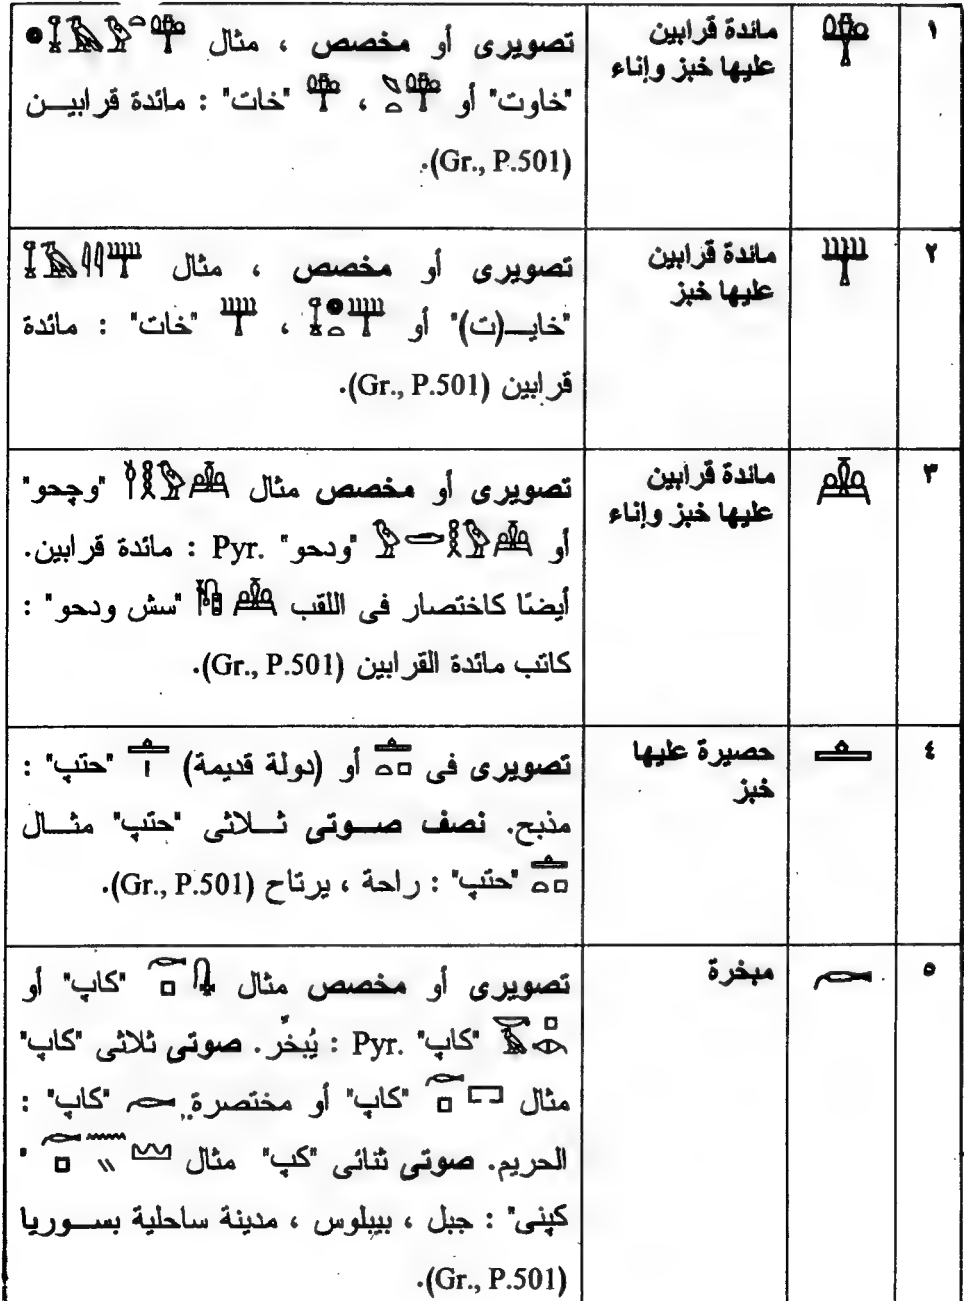 ١ مائدة قرابين تصويرى أو مخصص ، مثال
عليها خبز وإناء "خاوت" أو ، "خات" : مائدة قرابين
(Gr., P.501).
٢ مائدة قرابين تصويرى أو مخصص ، مثال
عليها خبز "خايـ(ت)" أو ، "خات" : مائدة
قرابين (Gr., P.501).
٣ مائدة قرابين تصويرى أو مخصص مثال "وچحو"
عليها خبز وإناء أو "ودحو" Pyr. : مائدة قرابين.
أيضًا كاختصار فى اللقب "سش ودحو" :
كاتب مائدة القرابين (Gr., P.501).
٤ حصيرة عليها تصويرى فى أو (دولة قديمة) "حتپ" :
خبز مذبح. نصف صوتى ثلاثى "حتپ" مثال
"حتپ" : راحة ، يرتاح (Gr., P.501).
٥ مبخرة تصويرى أو مخصص مثال "كاپ" أو
"كاپ" Pyr. : يُبخَّر. صوتى ثلاثى "كاپ"
مثال "كاپ" أو مختصرة "كاپ" :
الحريم. صوتى ثنائى "كپ" مثال "
كپنى" : جبل ، بيبلوس ، مدينة ساحلية بسوريا
(Gr., P.501).